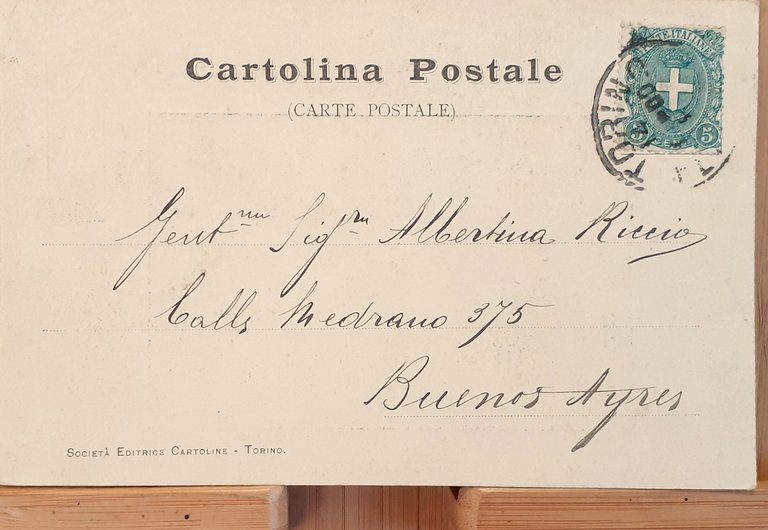 Cartolina Postale
(CARTE POSTALE)
POSTE ITALIANE
5 5
TORINO
Gent ma Sig ra Albertina Riccio
Calle Medrano 375
Buenos Ayres
SOCIETÀ EDITRICE CARTOLINE - TORINO.